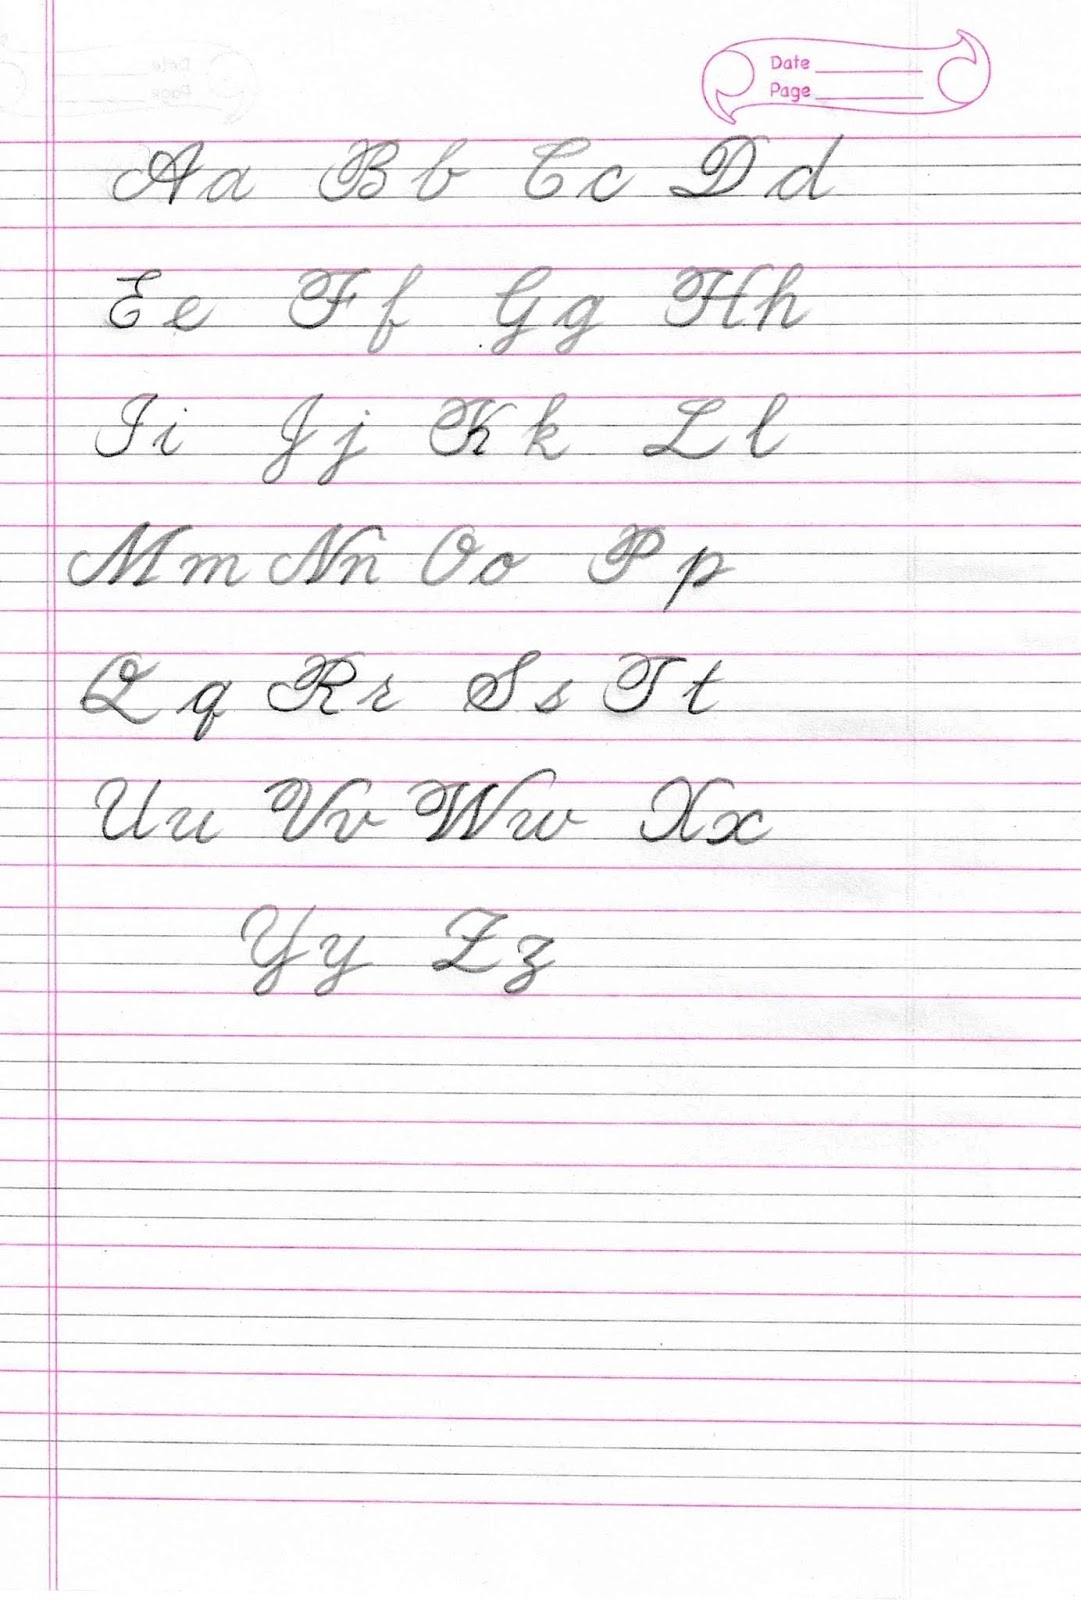 Date
Page
Aa Bb Cc Dd
Ee Ff Gg Hh
Ii Jj Kk Ll
Mm Nn Oo Pp
Qq Rr Ss Tt
Uu Vv Ww Xx
Yy Zz